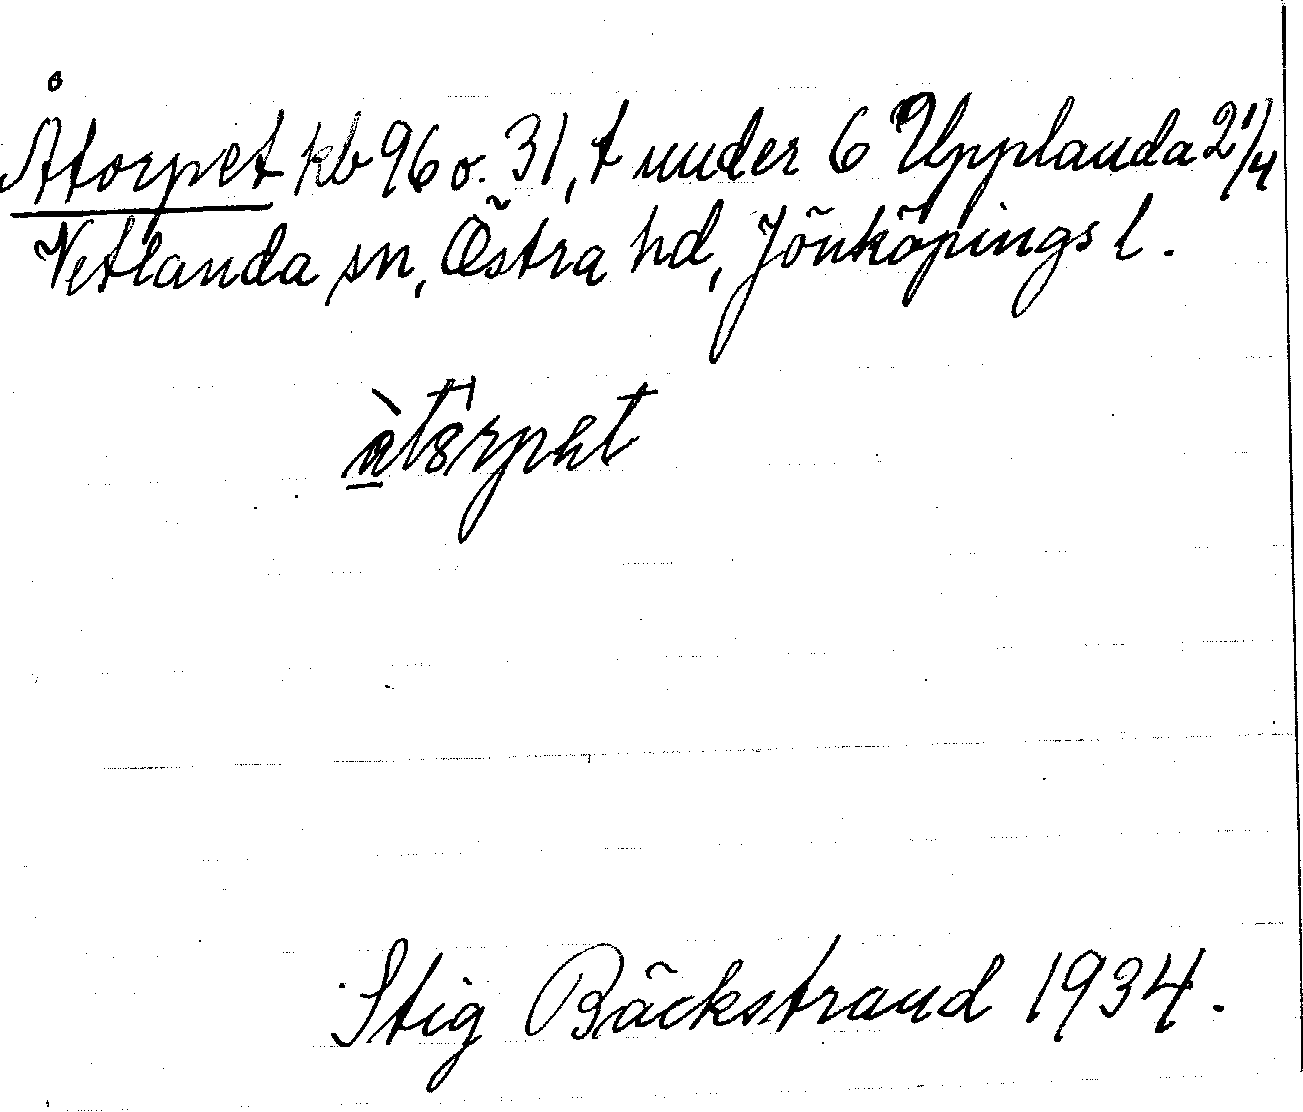 Åtorpet kb 96 o. 31, t under 6 Upplanda 2 1/4
Vetlanda sn, Östra hd, Jönköpings l.
Stig Bäckstrand 1934.